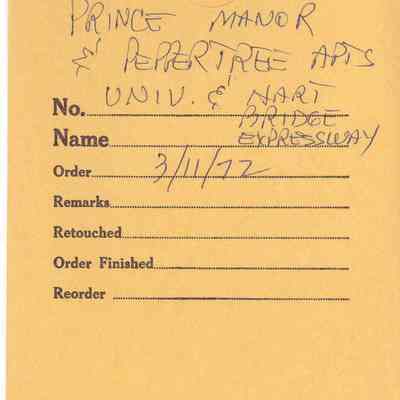 PRINCE MANOR
& PEPPERTREE APTS
No. UNIV. & HART
BRIDGE
Name EXPRESSWAY
Order 3/11/72
Remarks
Retouched
Order Finished
Reorder